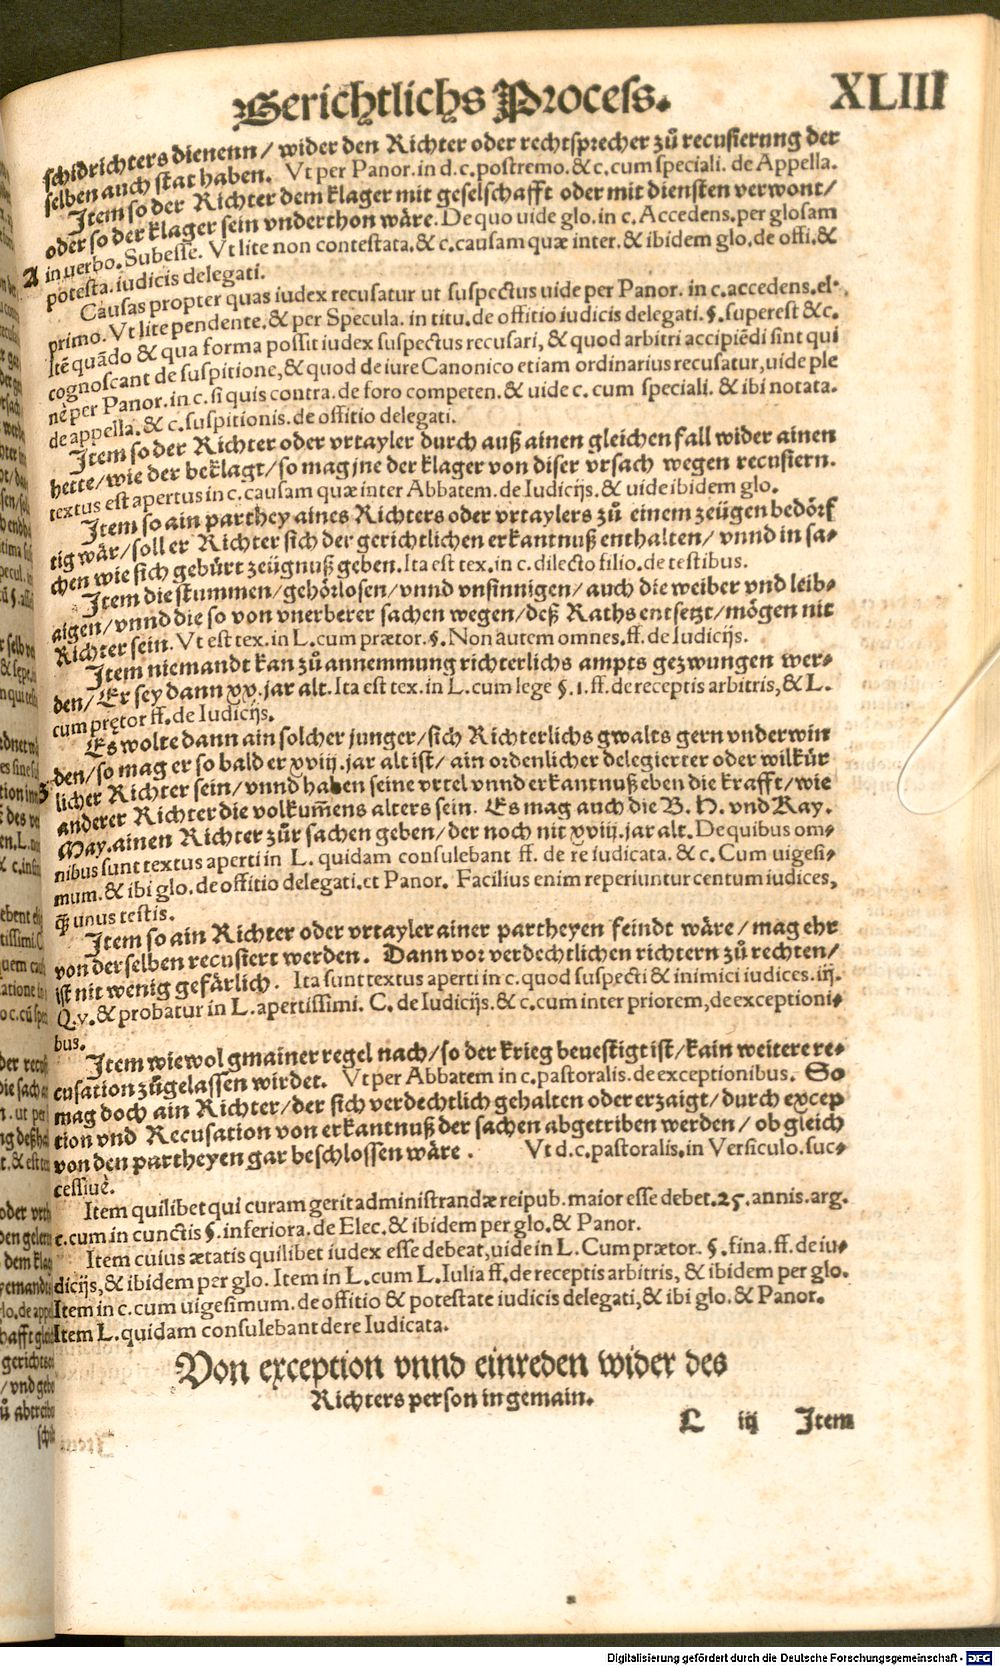 Gerichtlichs Process. XLIII
schidrichters dienenn/ wider den Richter oder rechtsprecher zů recusierung der
selben auch stat haben. Vt per Panor. in d. c. postremo. & c. cum speciali. de Appella.
Item so der Richter dem klager mit geselschafft oder mit diensten verwont/
oder so der klager sein vnderthon wäre. De quo uide glo. in c. Accedens. per glosam
A in uerbo. Subesse. Vt lite non contestata. & c. causam quæ inter. & ibidem glo. de offi. &
potesta. iudicis delegati.
Causas propter quas iudex recusatur ut suspectus uide per Panor. in c. accedens. el.
primo. Vt lite pendente. & per Specula. in titu. de offitio iudicis delegati. §. superest &c.
Itē quādo & qua forma possit iudex suspectus recusari, & quod arbitri accipiēdi sint qui
cognoscant de suspitione, & quod de iure Canonico etiam ordinarius recusatur, uide ple
nè per Panor. in c. si quis contra. de foro competen. & uide c. cum speciali. & ibi notata.
de appella. & c. suspitionis. de offitio delegati.
Item so der Richter oder vrtayler durch auß ainen gleichen fall wider ainen
hette/ wie der beklagt/ so mag jne der klager von diser vrsach wegen recusiern.
textus est apertus in c. causam quæ inter Abbatem. de Iudicijs. & uide ibidem glo.
Item so ain parthey aines Richters oder vrtaylers zů einem zeügen bedörf
tig wär/ soll er Richter sich der gerichtlichen erkantnuß enthalten/ vnnd in sa-
chen wie sich gebürt zeügnuß geben. Ita est tex. in c. dilecto filio. de testibus.
Item die stummen/ gehörlosen/ vnnd vnsinnigen/ auch die weiber vnd leib-
aigen/ vnnd die so von vnerberer sachen wegen/ deß Raths entsetzt/ mögen nit
Richter sein. Vt est tex. in L. cum prætor. §. Non autem omnes. ff. de Iudicijs.
Item niemandt kan zů annemmung richterlichs ampts gezwungen wer-
den/ Er sey dann xx. jar alt. Ita est tex. in L. cum lege §. 1. ff. de receptis arbitris, & L.
cum prętor ff. de Iudicijs.
Es wolte dann ain solcher junger/ sich Richterlichs gwalts gern vnderwin
den/ so mag er so bald er xviij. jar alt ist/ ain ordenlicher delegierter oder wilkür
licher Richter sein/ vnnd haben seine vrtel vnnd erkantnuß eben die krafft/ wie
anderer Richter die volkum̄ens alters sein. Es mag auch die B. H. vnd Kay.
May. ainen Richter zůr sachen geben/ der noch nit xviij. jar alt. De quibus om-
nibus sunt textus aperti in L. quidam consulebant ff. de re iudicata. & c. Cum uigesi-
mum. & ibi glo. de offitio delegati. et Panor. Facilius enim reperiuntur centum iudices,
q̄ʒ unus testis.
Item so ain Richter oder vrtayler ainer partheyen feindt wäre/ mag ehr
von derselben recusiert werden. Dann vor verdechtlichen richtern zů rechten/
ist nit wenig gefärlich. Ita sunt textus aperti in c. quod suspecti & inimici iudices. iij.
Q. v. & probatur in L. apertissimi. C. de Iudicijs. & c. cum inter priorem, de exceptioni-
bus.
Item wiewol gmainer regel nach/ so der krieg beuestigt ist/ kain weitere re-
cusation zůgelassen wirdet. Vt per Abbatem in c. pastoralis. de exceptionibus. So
mag doch ain Richter/ der sich verdechtlich gehalten oder erzaigt/ durch excep
tion vnd Recusation von erkantnuß der sachen abgetriben werden/ ob gleich
von den partheyen gar beschlossen wäre. Vt d. c. pastoralis. in Versiculo. suc-
cessiuè.
Item quilibet qui curam gerit administrandæ reipub. maior esse debet. 25. annis. arg.
c. cum in cunctis §. inferiora. de Elec. & ibidem per glo. & Panor.
Item cuius ætatis quilibet iudex esse debeat, uide in L. Cum prætor. §. fina. ff. de iu-
dicijs, & ibidem per glo. Item in L. cum L. Iulia ff. de receptis arbitris, & ibidem per glo.
Item in c. cum uigesimum. de offitio & potestate iudicis delegati, & ibi glo. & Panor.
Item L. quidam consulebant de re Iudicata.
Von exception vnnd einreden wider des
Richters person in gemain.
L iij Item
Digitalisierung gefördert durch die Deutsche Forschungsgemeinschaft - DFG